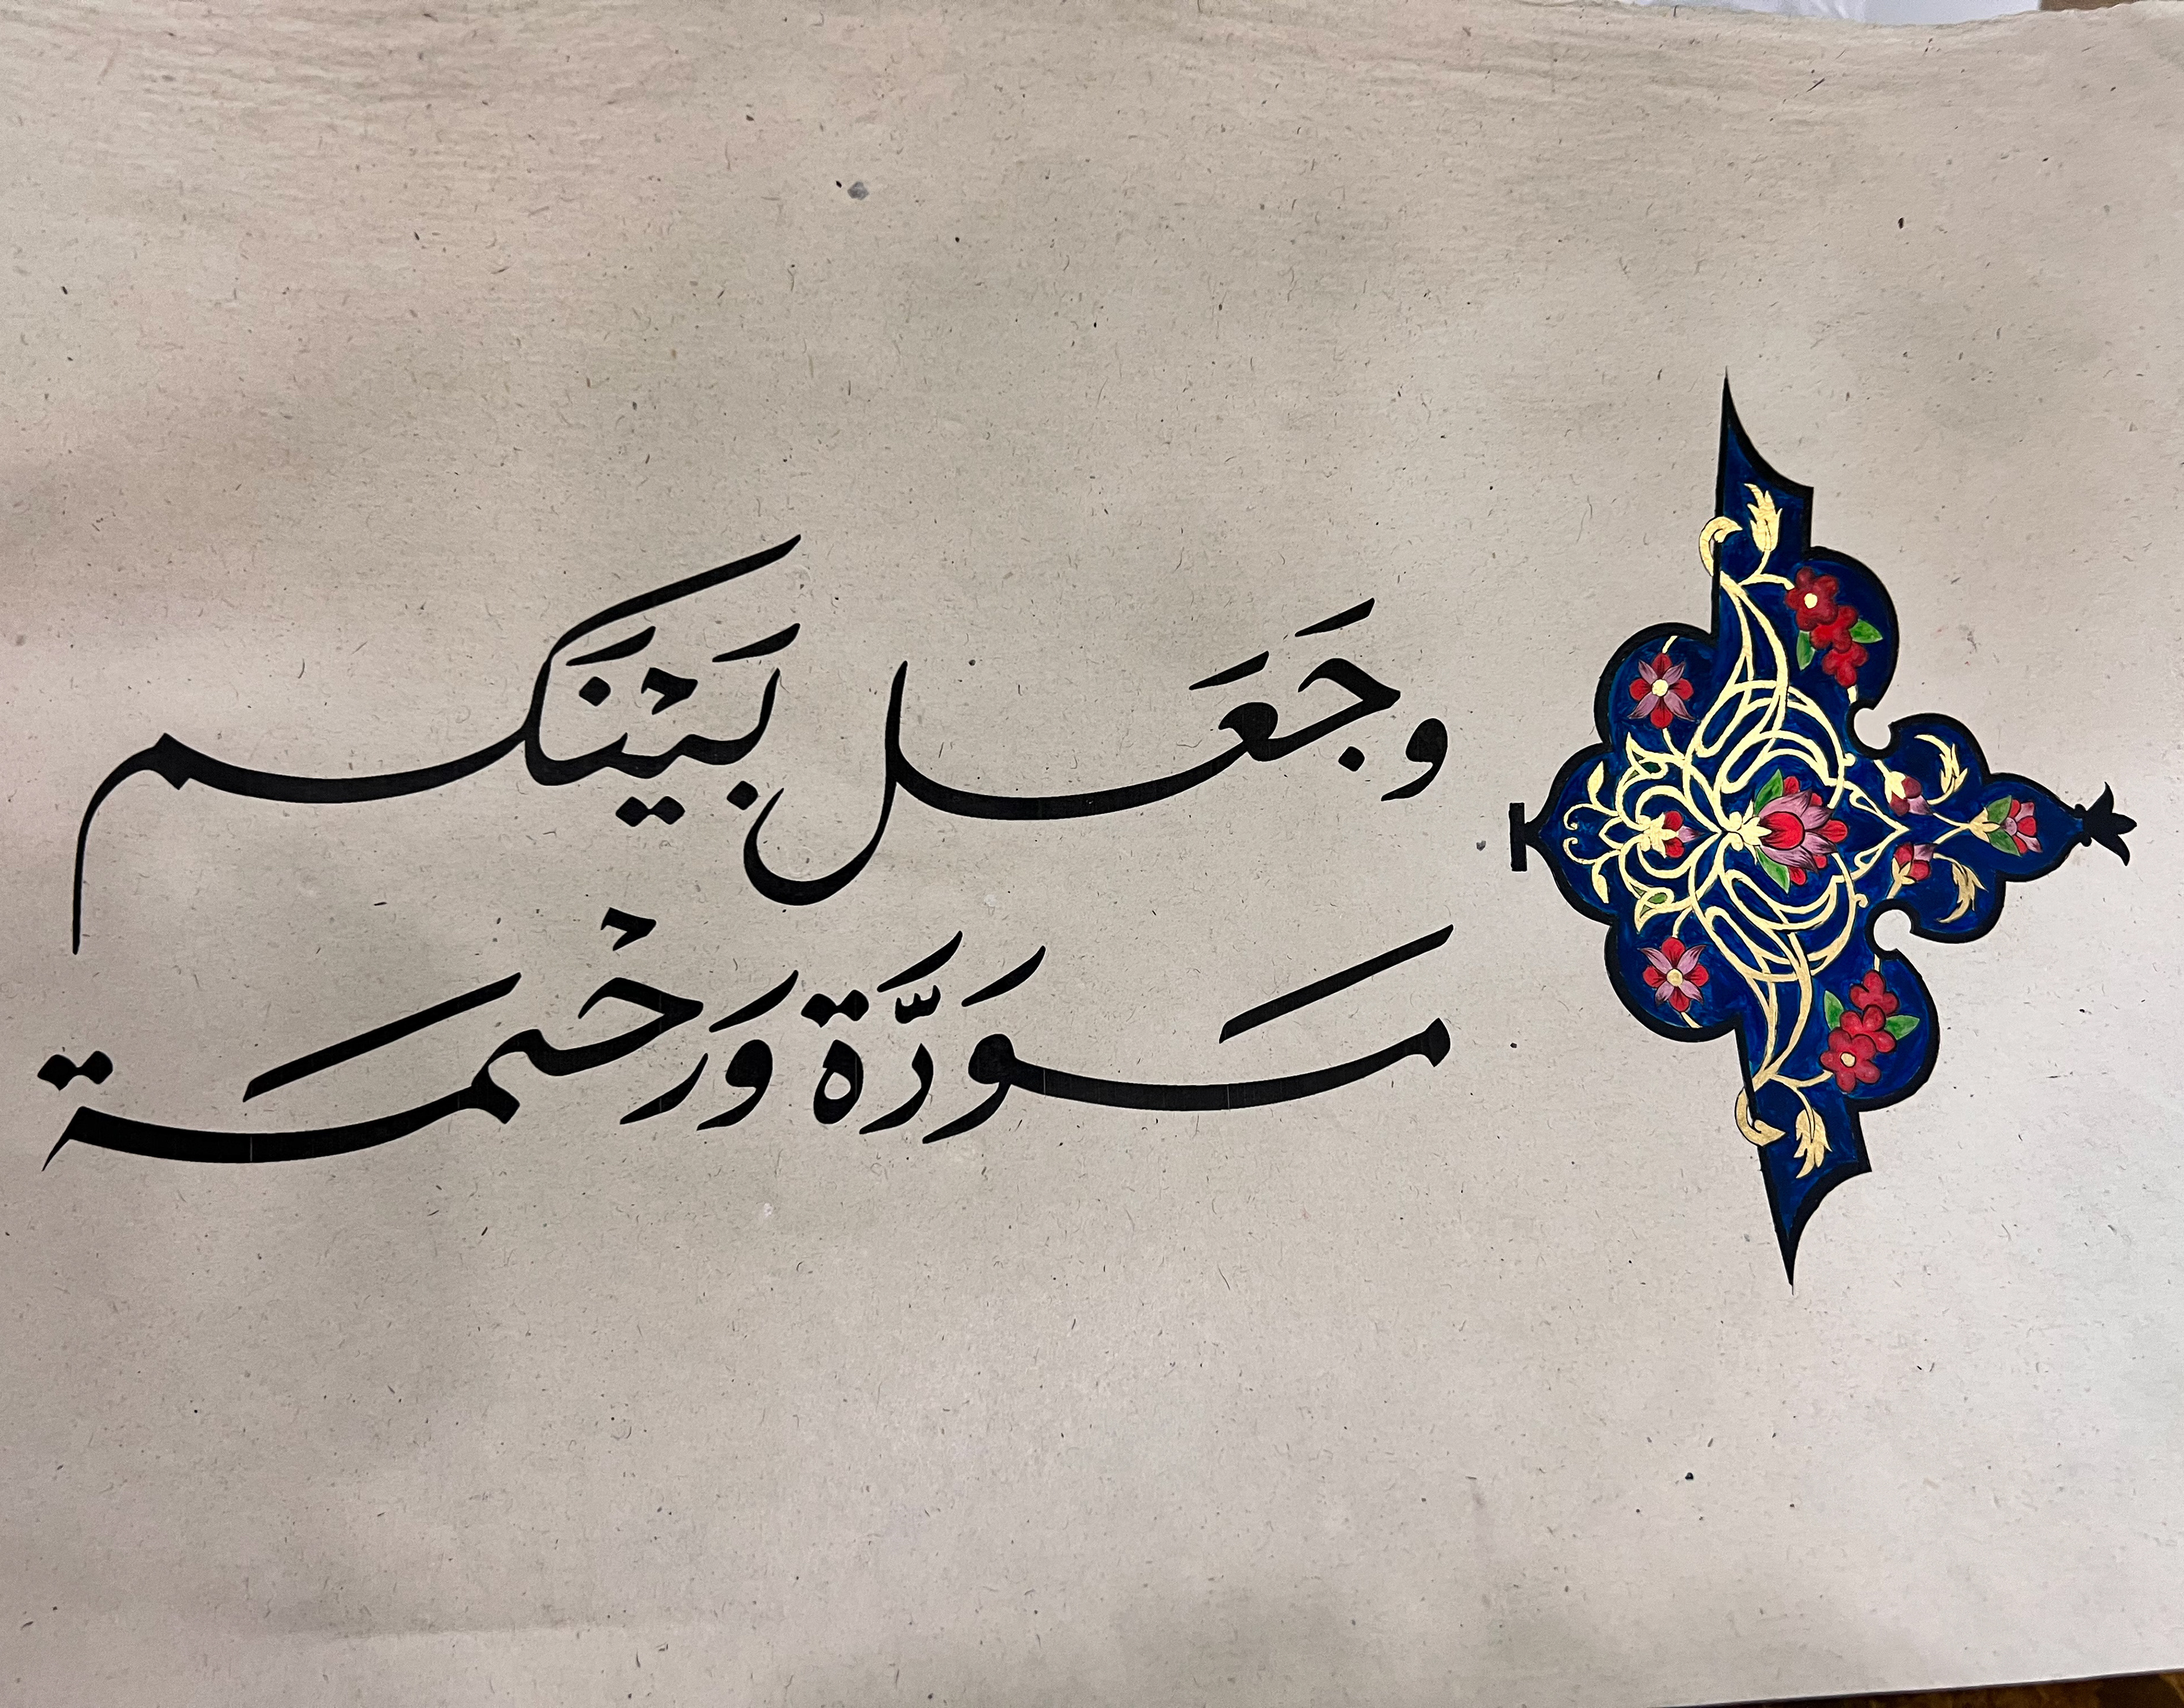 وجَعَل بَيْنَكم
مَوَدَّة وَرَحْمَة